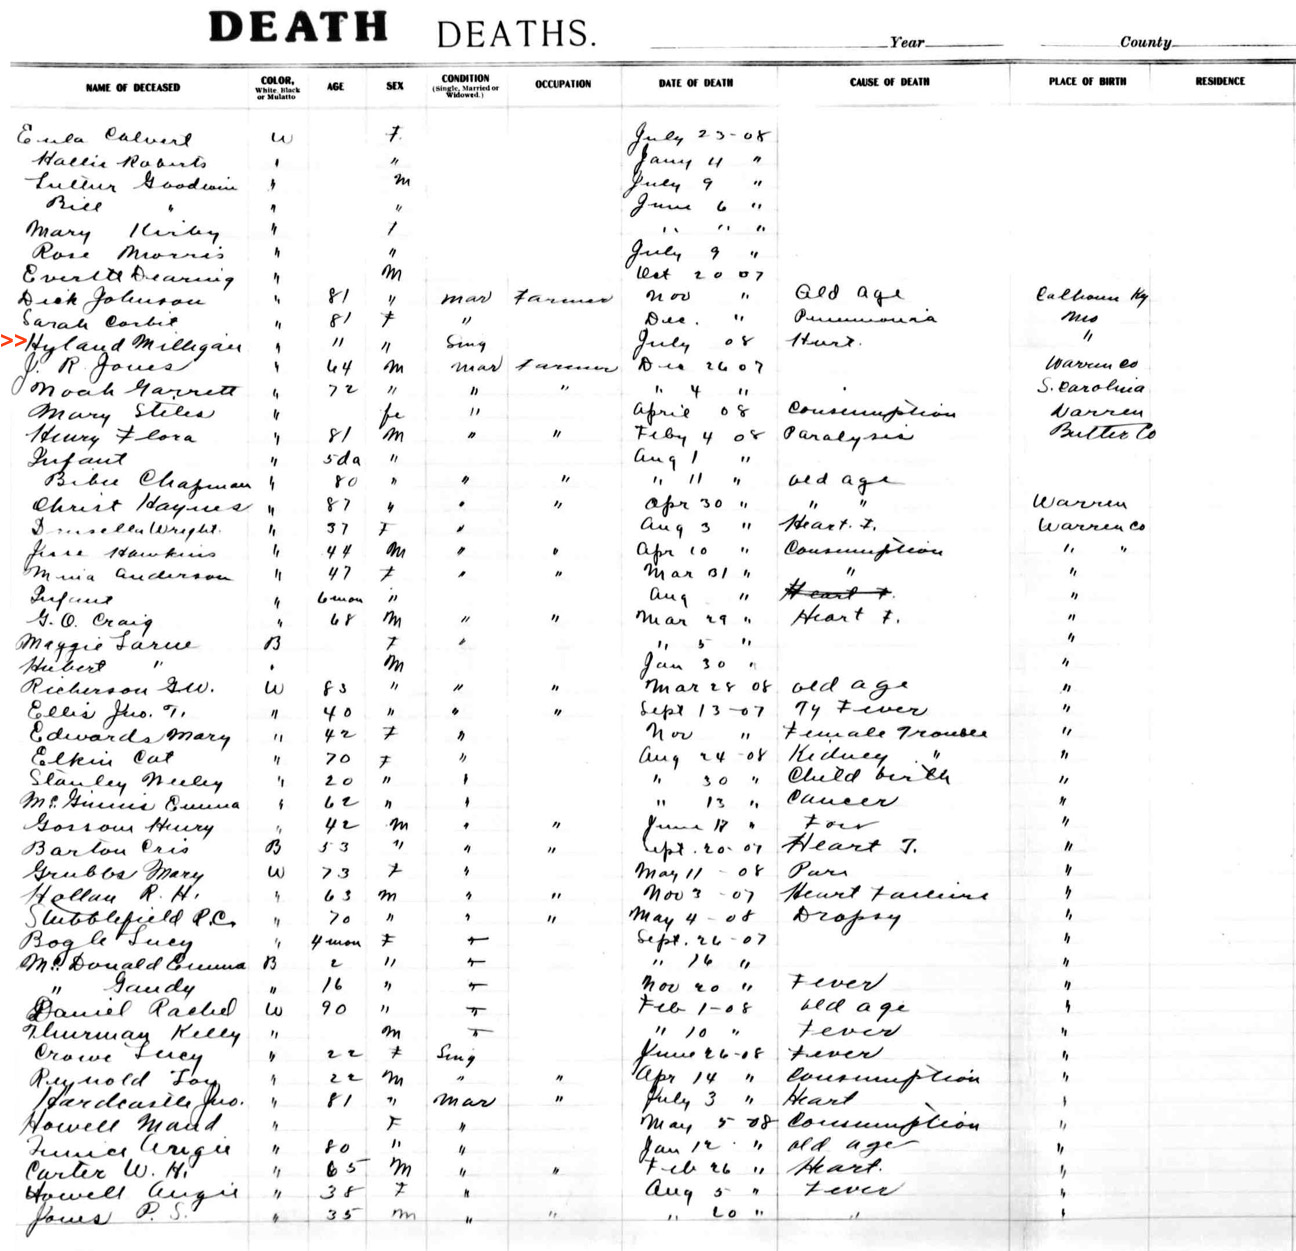 DEATH DEATHS. Year County
NAME OF DECEASED COLOR, White, Black or Mulatto AGE SEX CONDITION (Single, Married or Widowed.) OCCUPATION DATE OF DEATH CAUSE OF DEATH PLACE OF BIRTH RESIDENCE
Eula Calvert W F July 23-08
Hallie Roberts " " Jany 4 "
Luther Goodwin " M July 9 "
Bill " " " June 6 "
Mary Kirby " f " " "
Rose Morris " " July 9 "
Everett Dearing " M Oct 20 07
Dick Johnson " 81 " Mar Farmer Nov " Old Age Calhoun Ky
Sarah Corbit " 81 F " Dec. " Pneumonia Mo
>>Hyland Milligan " " " Sing July 08 Hurt. "
J. R. Jones " 64 M Mar Farmer Dec 26 07 Warren Co
Noah Garrett " 72 " " " " 4 " S. Carolina
Mary Stiles " fe " April 08 Consumption Warren
Henry Flora " 81 M " " Feby 4 08 Paralysis Butler Co
Infant " 5da " Aug 1 "
Bibee Chapman " 80 " " " " 11 " old age
Christ Haynes " 87 " " " Apr 30 " " " Warren
Drusella Wright. " 37 F " Aug 3 " Heart. F. Warren Co
Jesse Hawkins " 44 M " " Apr 10 " Consumption " "
Anderson " 47 F " " Mar 31 " " "
Infant " 6 mon " Aug " Heart F. "
G. O. Craig " 68 M " " Mar 29 " Heart F. "
Maggie Larue B F " " 5 " "
Hubert " " M Jan 30 " "
Richerson G.W. W 83 " " " Mar 28 08 old age "
Ellis Jno. T. " 40 " " " Sept 13-07 Ty Fever "
Edwards Mary " 42 F " Nov " Female Trouble "
Elkin Cat " 70 F " Aug 24-08 Kidney " "
Stanley " 20 " " " 30 " Child birth "
McGinnis Emma " 62 " " " 13 " Cancer "
Gossom Henry " 42 M " " June 18 " "
Barton Cris B 53 " " " Sept. 20-07 Heart F. "
Grubbs Mary W 73 F " May 11 - 08 Para "
R. H. " 63 M " " Nov 3 - 07 Heart Failure "
Stubblefield P.C. " 70 " " " May 4 - 08 Dropsy "
Bogle Lucy " 4 mon F Sept. 26-07 "
McDonald Emma B 2 " " 16 " "
" Gandy " 16 " Nov 20 " Fever "
Daniel Rachel W 90 " Feb 1-08 old age "
Thurman Kelly " M " 10 " Fever "
Crowe Lucy " 22 F Sing June 26-08 Fever "
Reynold " 22 M " " Apr 14 " Consumption "
Hardcastle Jno. " 81 " Mar " July 3 " Heart "
Howell Maud " F " May 5-08 Consumption "
Angie " 80 " " Jan 12 " old age "
Carter W. H. " 65 M " " Feb 26 " Heart. "
Howell Angie " 38 F " Aug 5 " Fever "
Jones P. S. " 35 M " " " 20 " " "